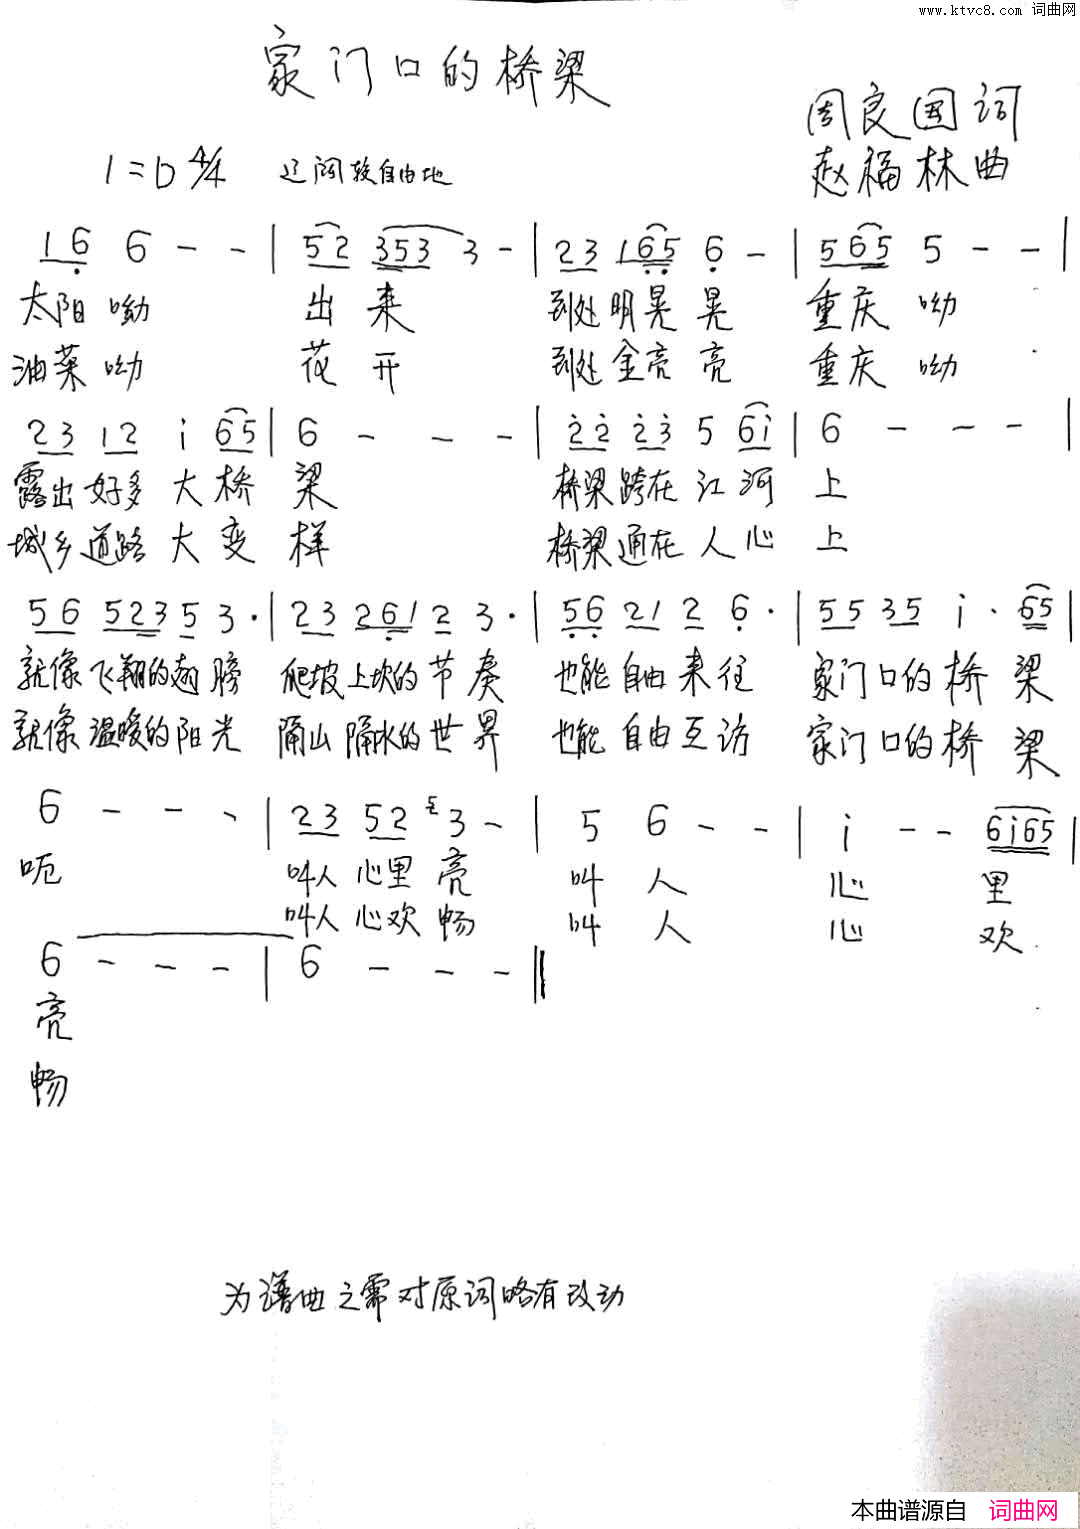 www.ktvc8.com 词曲网
家门口的桥梁
周良国词
1=D 4/4 辽阔较自由地
赵福林曲
1 6 6 - - | 5 2 3 5 3 3 - | 2 3 1 6 5 6 - | 5 6 5 5 - - |
太阳呦 出来 到处明晃晃 重庆呦
油菜呦 花开 到处金亮亮 重庆呦
2 3 1 2 i 6 5 | 6 - - - | 2 2 2 3 5 6 i | 6 - - - |
露出好多大桥梁 桥梁跨在江河上
城乡道路大变样 桥梁通在人心上
5 6 5 2 3 5 3 · | 2 3 2 6 1 2 3 · | 5 6 2 1 2 6 · | 5 5 3 5 i · 6 5 |
就像飞翔的翅膀 爬坡上坎的节奏 也能自由来往 家门口的桥梁
就像温暖的阳光 隔山隔水的世界 也能自由互访 家门口的桥梁
6 - - - | 2 3 5 2 5 3 - | 5 6 - - | i - - 6 i 6 5 |
呃 叫人心里亮 叫人心里
叫人心欢畅 叫人心欢
6 - - - | 6 - - - ||
亮
畅
为谱曲之需对原词略有改动
本曲谱源自 词曲网